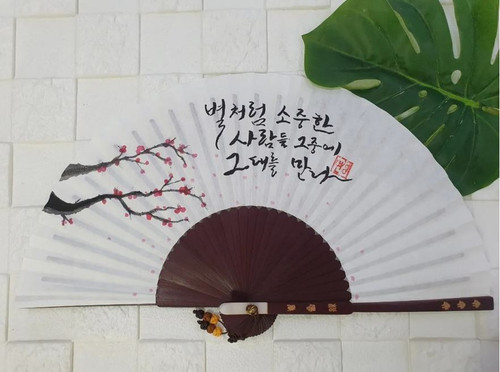 별처럼 소중한
사람들 그중에
그대를 만나